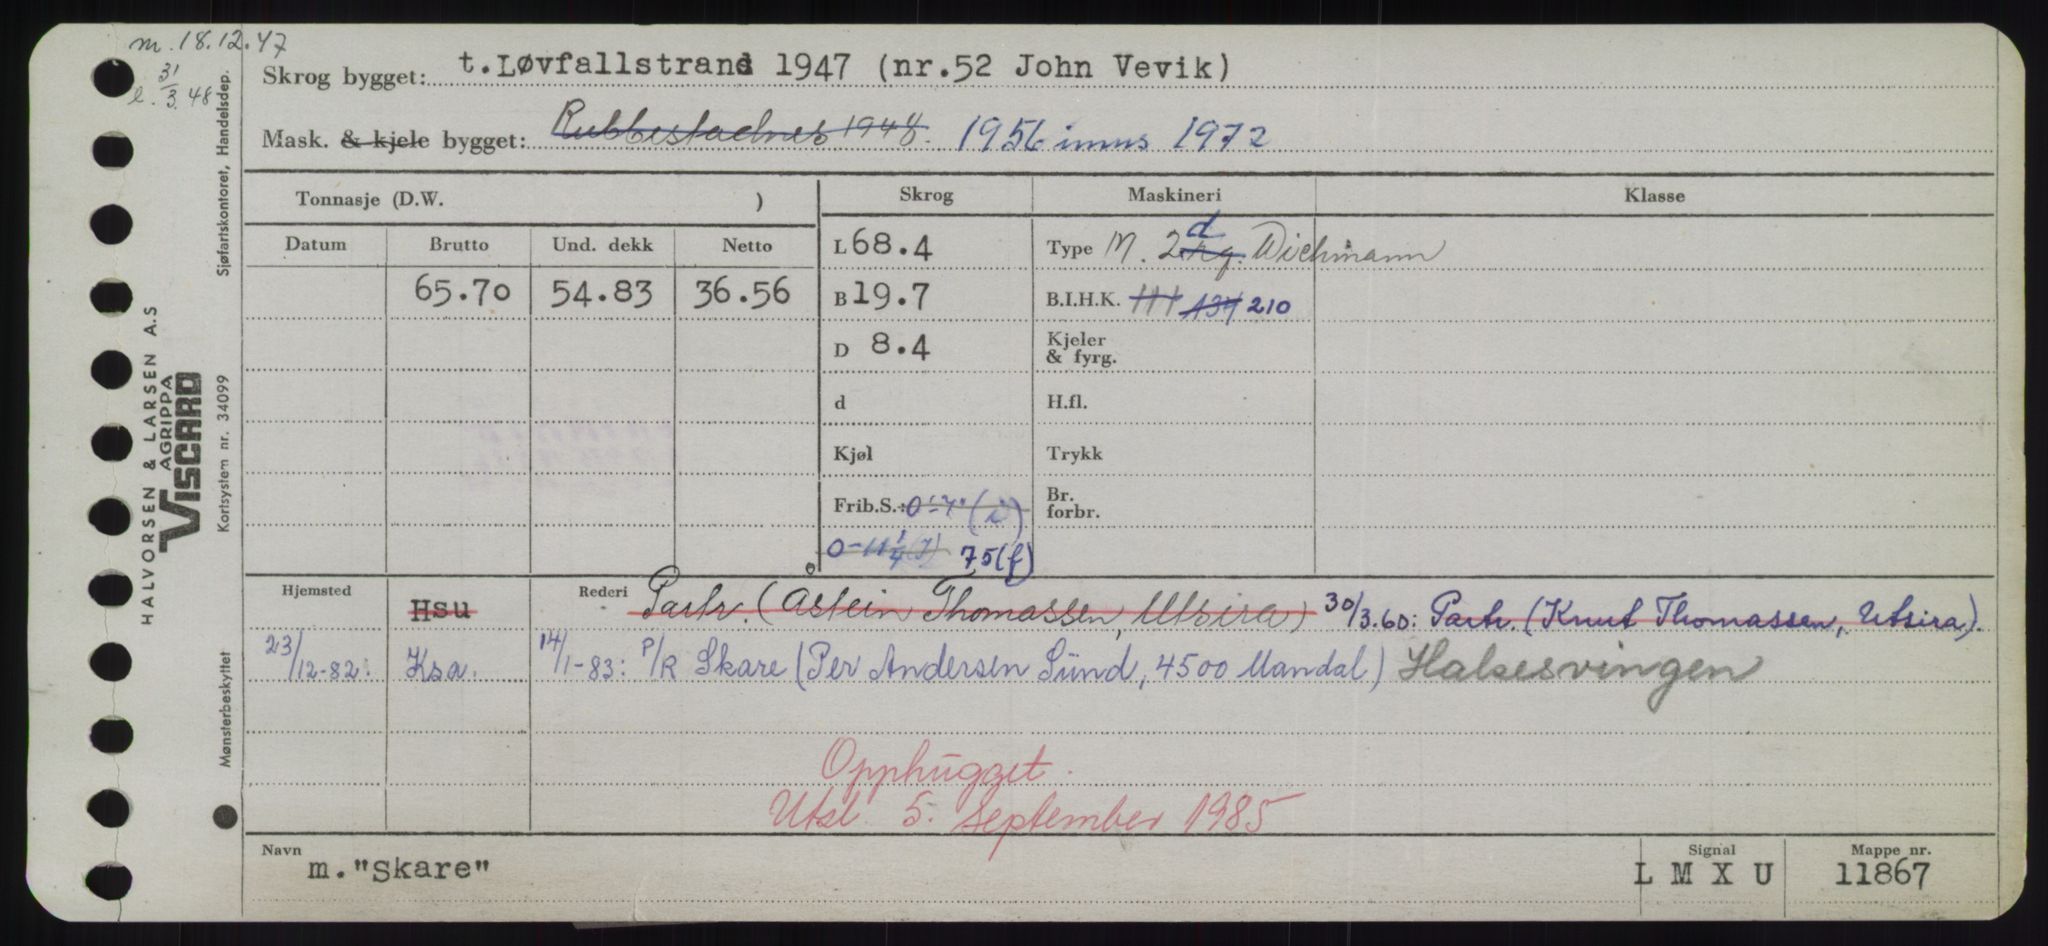 m. 18.12.47
l. 31/3.48
Skrog bygget: t. Løvfallstrand 1947 (nr.52 John Vevik)
Mask. & kjele bygget: Rubbestadnes 1948. 1956 inns 1972
Tonnasje (D.W. ) Skrog Maskineri Klasse
Datum Brutto Und. dekk Netto L 68.4 Type M. 2 d Wichmann
65.70 54.83 36.56 B 19.7 B.I.H.K. 111 134 210
D 8.4 Kjeler & fyrg.
d H.fl.
Kjøl Trykk
Frib.S.: 0-7" (i) Br. forbr.
0-11 1/4 75(f)
Hjemsted Hsu Rederi Partr. (Åstein Thomassen, Utsira) 30/3.60: Partr. (Knut Thomassen, Utsira).
23/12-82: Ksa. 14/1-83: P/R Skare (Per Andersen Sünd, 4500 Mandal) Halsesvingen
Opphugget.
Utsl. 5. september 1985
Navn m. "Skare" Signal L M X U Mappe nr. 11867
HALVORSEN & LARSEN A.S
AGRIPPA
VISCARD
Sjøfartskontoret, Handelsdep.
Kortsystem nr. 34099
Mønsterbeskyttet